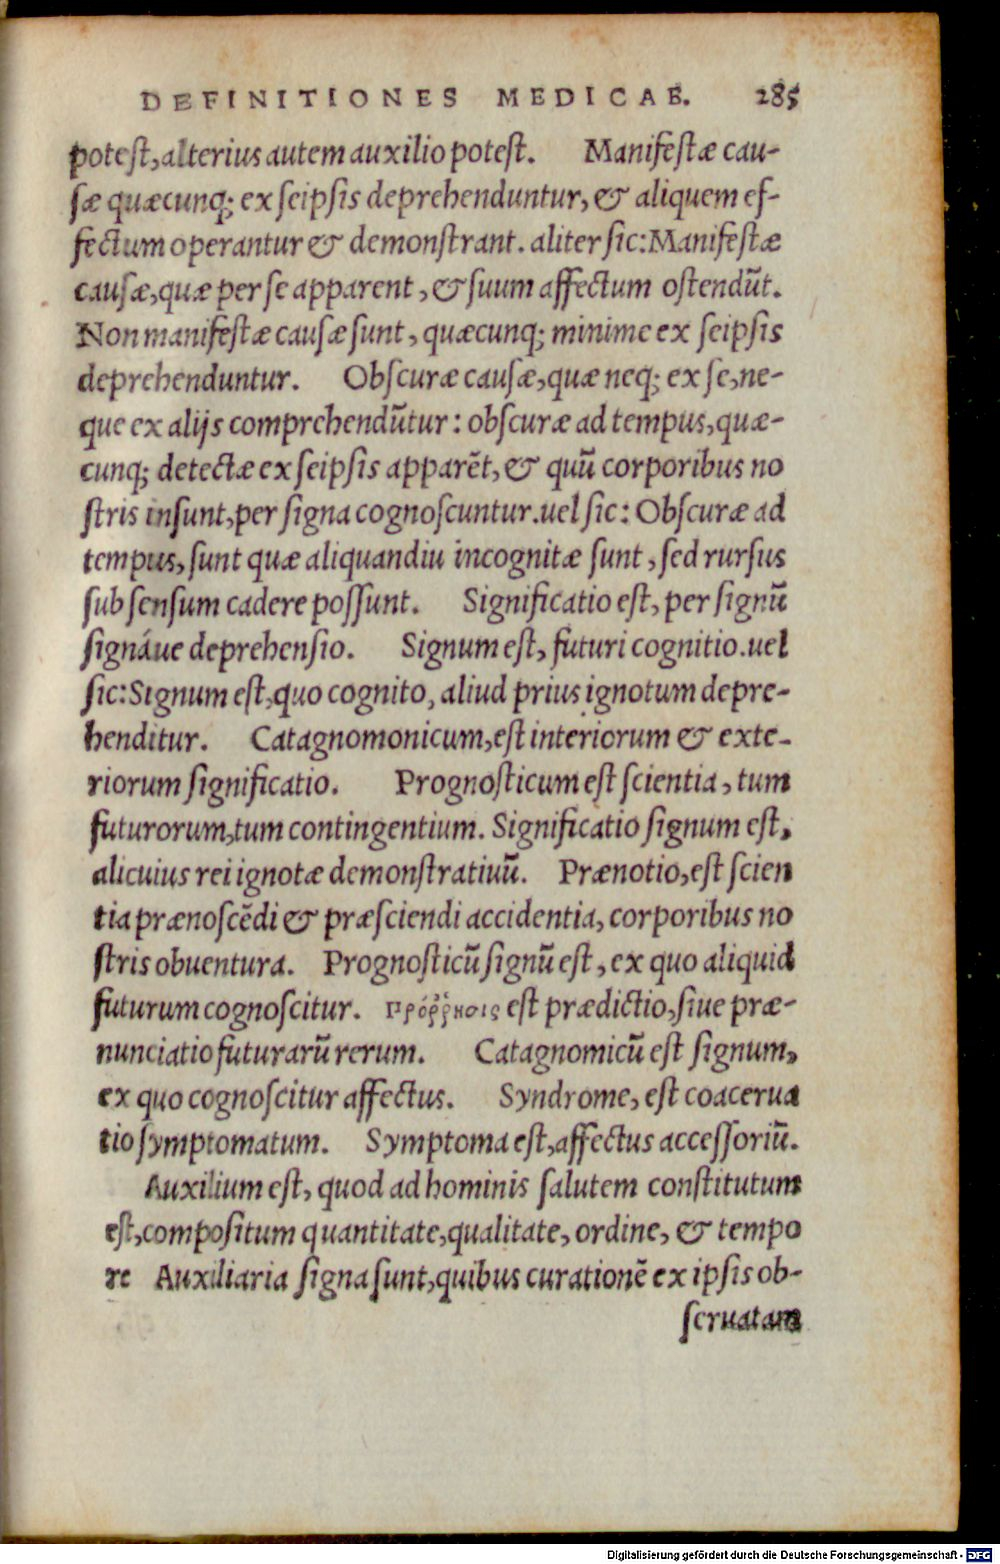 DEFINITIONES MEDICAE. 285
potest, alterius autem auxilio potest. Manifestæ cau-
sæ quæcunq; ex seipsis deprehenduntur, & aliquem ef-
fectum operantur & demonstrant. aliter sic: Manifestæ
causæ, quæ per se apparent, & suum affectum ostendūt.
Non manifestæ causæ sunt, quæcunq; minime ex seipsis
deprehenduntur. Obscuræ causæ, quæ neq; ex se, ne-
que ex alijs comprehendūtur: obscuræ ad tempus, quæ-
cunq; detectæ ex seipsis apparēt, & quū corporibus no
stris insunt, per signa cognoscuntur. uel sic: Obscuræ ad
tempus, sunt quæ aliquandiu incognitæ sunt, sed rursus
sub sensum cadere possunt. Significatio est, per signū
signáue deprehensio. Signum est, futuri cognitio. uel
sic: Signum est, quo cognito, aliud prius ignotum depre-
henditur. Catagnomonicum, est interiorum & exte-
riorum significatio. Prognosticum est scientia, tum
futurorum, tum contingentium. Significatio signum est,
alicuius rei ignotæ demonstratiuū. Prænotio, est scien
tia prænoscēdi & præsciendi accidentia, corporibus no
stris obuentura. Prognosticū signū est, ex quo aliquid
futurum cognoscitur. Πρόῤῥησις est prædictio, siue præ-
nunciatio futurarū rerum. Catagnomicū est signum,
ex quo cognoscitur affectus. Syndrome, est coacerua
tio symptomatum. Symptoma est, affectus accessoriū.
Auxilium est, quod ad hominis salutem constitutum
est, compositum quantitate, qualitate, ordine, & tempo
re Auxiliaria signa sunt, quibus curationē ex ipsis ob-
seruatam
Digitalisierung gefördert durch die Deutsche Forschungsgemeinschaft - DFG